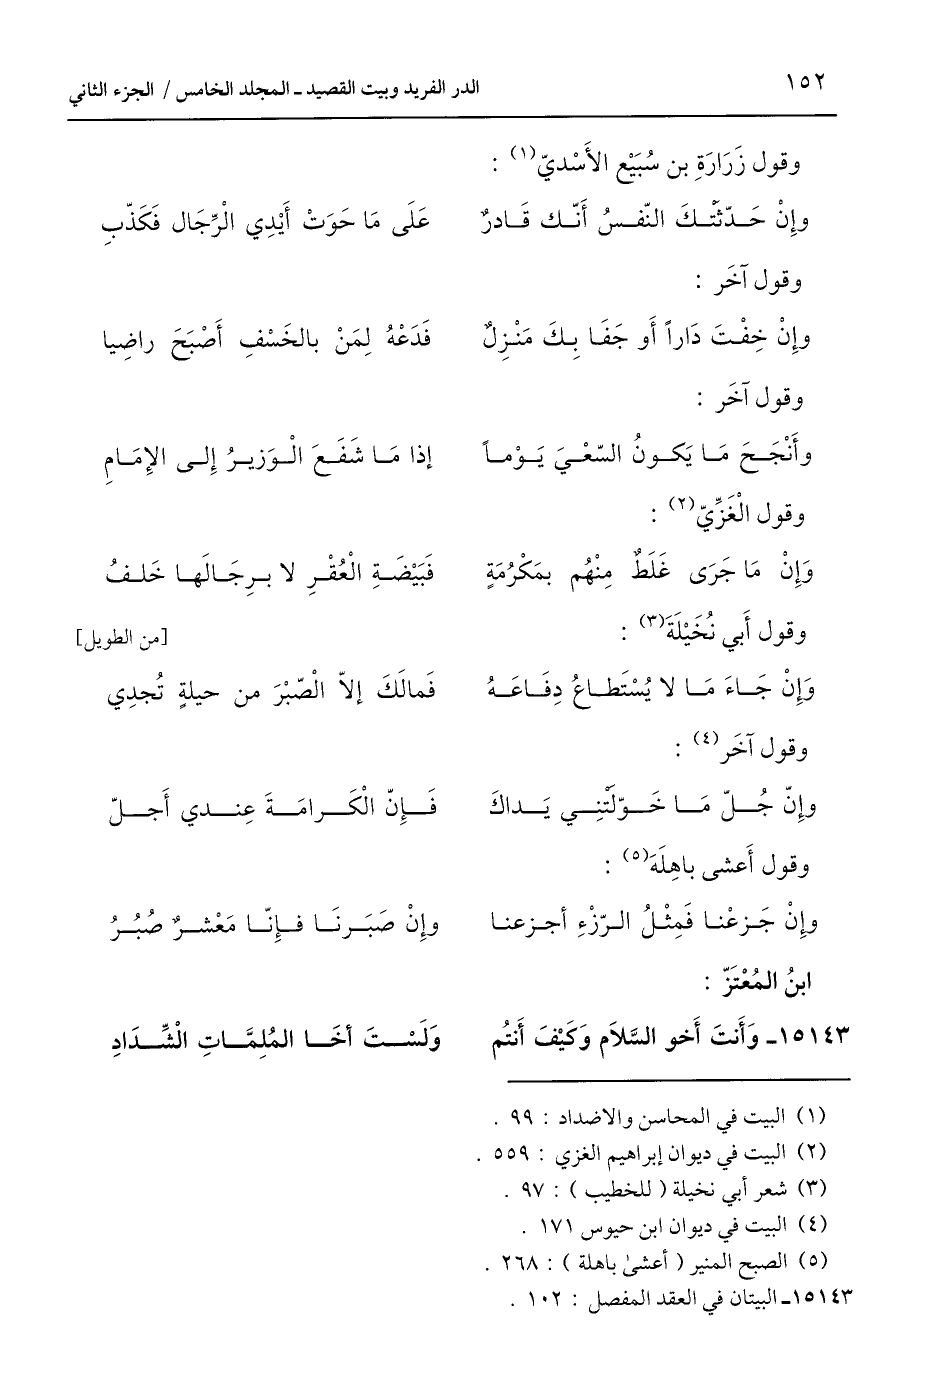 ١٥٢ الدر الفريد وبيت القصيد ـ المجلد الخامس / الجزء الثاني
وقول زَرَارَةِ بن سُبَيْعٍ الأَسْديّ(١) :
وإِنْ حَدّثَتْكَ النّفسُ أَنّك قَادرٌ عَلَى مَا حَوَتْ أَيْدِي الْرِّجَال فَكَذّبِ
وقول آخَر :
وإنْ خِفْتَ دَاراً أَو جَفَا بِكَ مَنْزِلٌ فَدَعْهُ لِمَنْ بالخَسْفِ أَصْبَحَ راضِيا
وقول آخَر :
وأَنْجَحَ مَا يَكونُ السّعْيَ يَوْماً إذا مَا شَفَعَ الْوَزيرُ إِلى الإِمَامِ
وقول الْغَزِّيّ(٢) :
وَإِنْ مَا جَرَى غَلَطٌ مِنْهُم بمَكْرُمَةٍ فَبَيْضَةِ الْعُقْرِ لا بِرِجَالَها خَلفُ
وقول أَبي نُخَيْلَةَ(٣) : [من الطويل]
وَإِنْ جَاءَ مَا لا يُسْتَطاعُ دِفَاعَهُ فَمالَكَ إلاّ الْصّبْرَ من حيلةٍ تُجدِي
وقول آخَر(٤) :
وإِنّ جُلّ مَا خَوّلَتْنِي يَداكَ فَإِنّ الْكَرامَةَ عِندي أَجلّ
وقول أَعشى باهِلَة(٥) :
وإِنْ جَزعْنا فَمِثْلُ الرّزْءِ أجزعنا وإِنْ صَبَرنَا فإِنّا مَعْشرٌ صُبُرُ
ابنُ المُعْتَزّ :
١٥١٤٣ـ وَأَنتَ أَخو السَّلاَمِ وَكَيْفَ أَنتُم وَلَسْتَ أَخَا المُلِمَّاتِ الْشِّدَادِ
(١) البيت في المحاسن والاضداد : ٩٩ .
(٢) البيت في ديوان إبراهيم الغزي : ٥٥٩ .
(٣) شعر أبي نخيلة ( للخطيب ) : ٩٧ .
(٤) البيت في ديوان ابن حيوس ١٧١ .
(٥) الصبح المنير ( أعشىٰ باهلة ) : ٢٦٨ .
١٥١٤٣ـ البيتان في العقد المفصل : ١٠٢ .